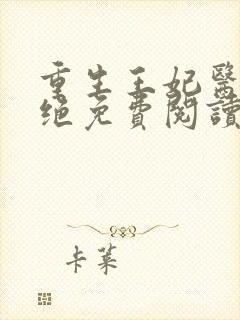 重生王妃醫
绝免費閱讀
卡莱